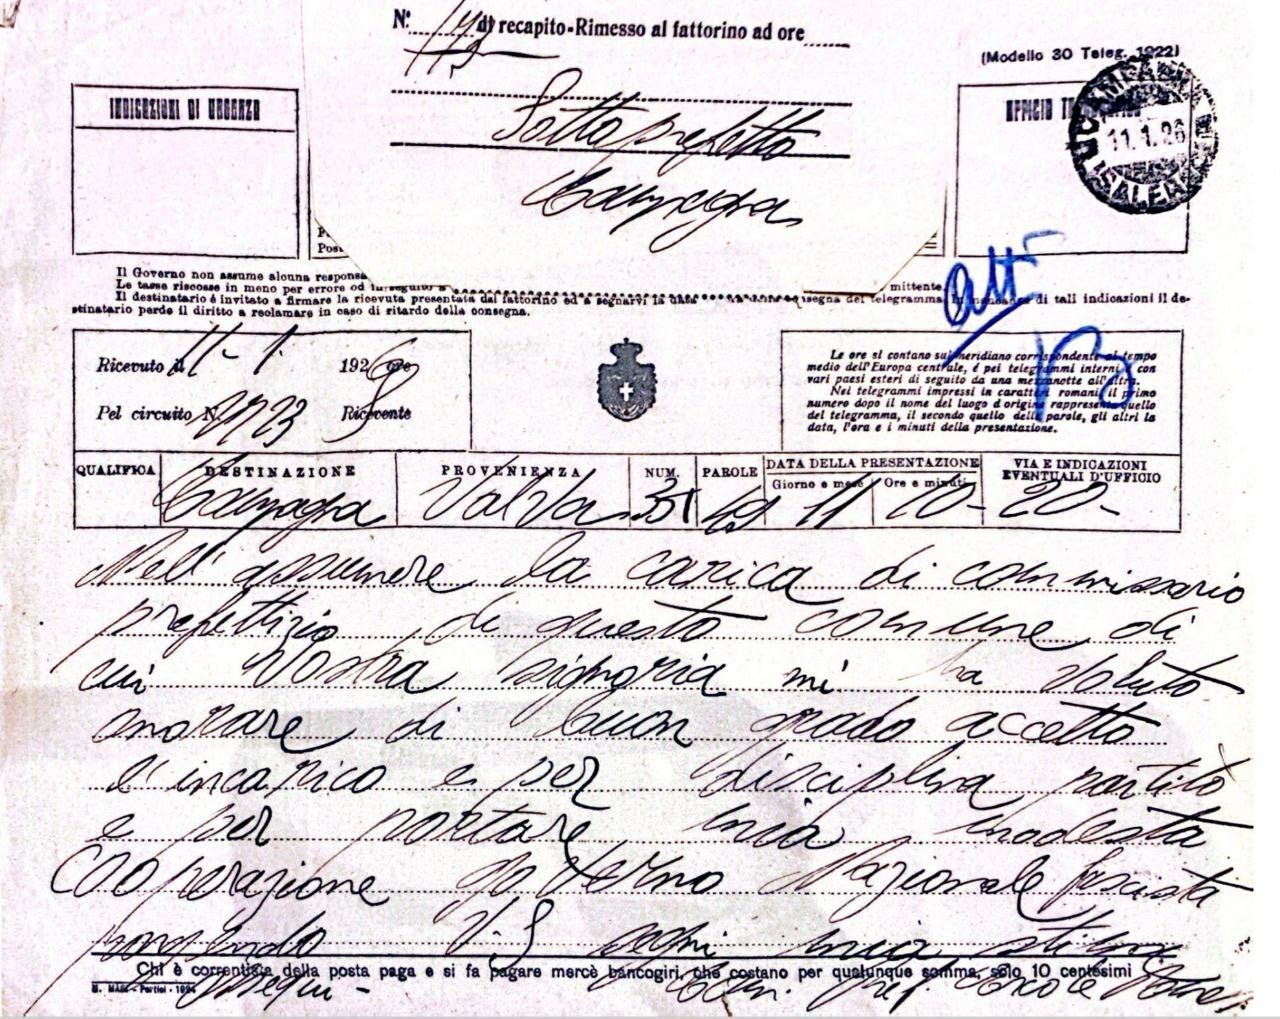 N.° di recapito - Rimesso al fattorino ad ore
(Modello 30 Teleg. 1922)
INDICAZIONI DI URGENZA
Sottoprefetto
Campagna
UFFICIO
11.1.26
Il Governo non assume alcuna
Le tasse riscosse in meno per errore od in seguito a
mittente.
Il destinatario è invitato a firmare la ricevuta presentata dal fattorino ed a segnarvi la data del telegramma. In mancanza di tali indicazioni il de-
stinatario perde il diritto a reclamare in caso di ritardo della consegna.
Atti
Ricevuto il 11-1. 1926 ore
Pel circuito N. Ricevente
Le ore si contano sul meridiano corrispondente al tempo
medio dell'Europa centrale, é pei telegrammi interni e con
vari paesi esteri di seguito da una mezzanotte all'altra.
Nei telegrammi impressi in caratteri romani, il primo
numero dopo il nome del luogo d'origine rappresenta quello
del telegramma, il secondo quello delle parole, gli altri la
data, l'ora e i minuti della presentazione.
QUALIFICA DESTINAZIONE PROVENIENZA NUM. PAROLE DATA DELLA PRESENTAZIONE VIA E INDICAZIONI
Giorno e mese Ore e minuti EVENTUALI D'UFFICIO
Campagna Valva 11 10-20-
Nell'assumere la carica di commissario
prefettizio di questo comune di
cui Vostra Signoria mi ha voluto
onorare di buon grado accetto
l'incarico e per disciplina partito
e per portare mia modesta
Cooperazione governo Nazionale fascista
porgendo V.S segni mia stima
Chi è correntista della posta paga e si fa pagare mercè bancogiri, che costano per qualunque somma, solo 10 centesimi
ossequi - Comm. pref Ercole